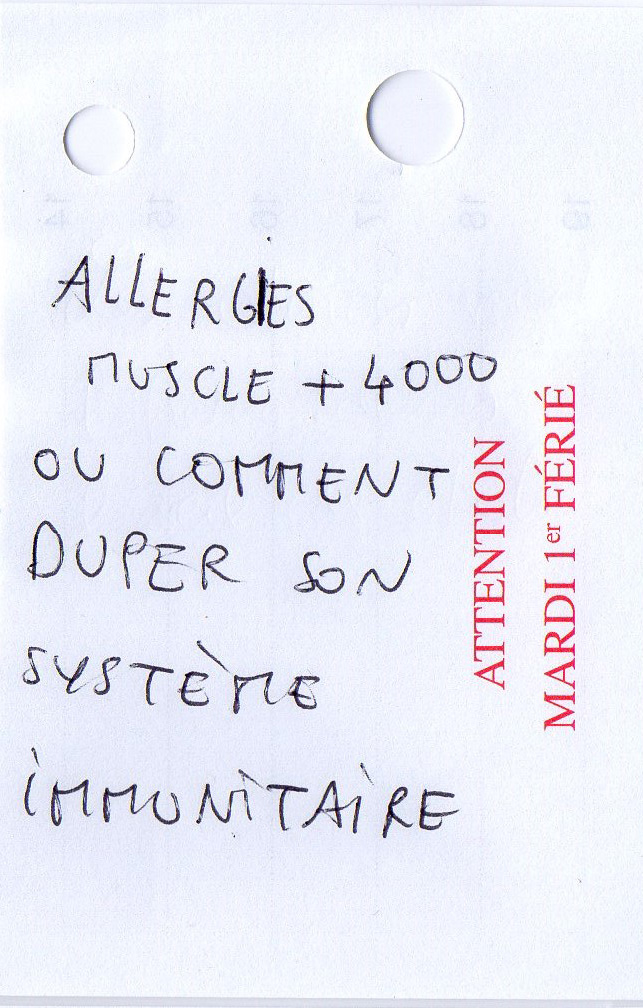 ALLERGIES
MUSCLE + 4000
OU COMMENT
DUPER SON
SYSTÈME
IMMUNITAIRE
ATTENTION
MARDI 1er FÉRIÉ
14 15 16 17 18 19